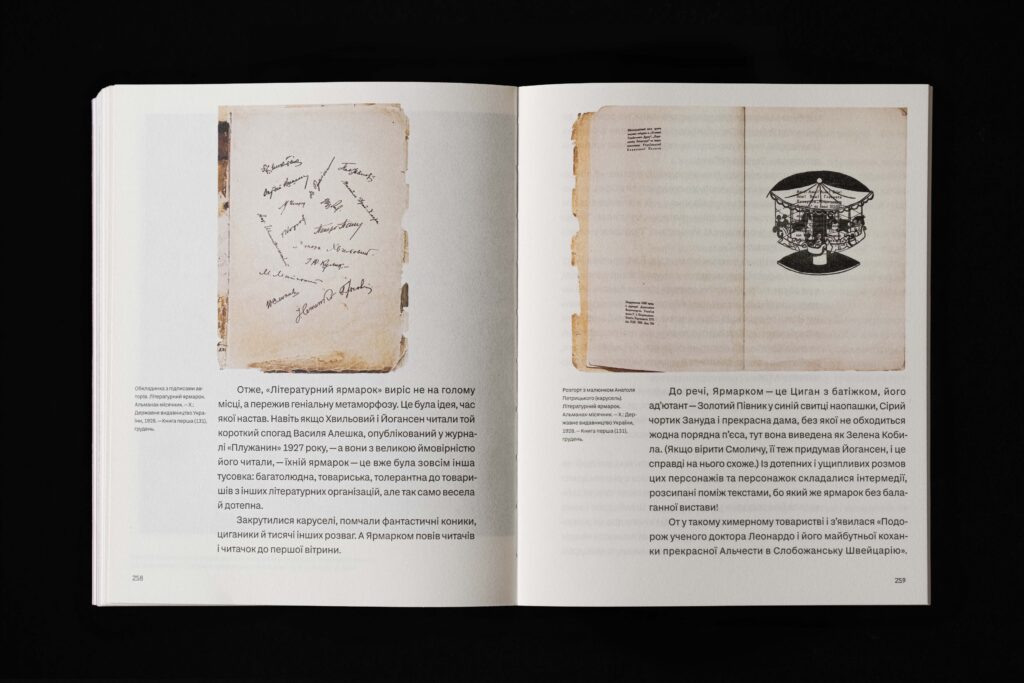 Обкладинка з підписами ав-
торів. Літературний ярмарок.
Альманах місячник. — Х.:
Державне видавництво Укра-
їни, 1928. — Книга перша (131),
грудень.
Отже, «Літературний ярмарок» виріс не на голому
місці, а пережив геніальну метаморфозу. Це була ідея, час
якої настав. Навіть якщо Хвильовий і Йогансен читали той
короткий спогад Василя Алешка, опублікований у журна-
лі «Плужанин» 1927 року, — а вони з великою ймовірністю
його читали, — їхній ярмарок — це вже була зовсім інша
тусовка: багатолюдна, товариська, толерантна до товари-
шів з інших літературних організацій, але так само весела
й дотепна.
Закрутилися каруселі, помчали фантастичні коники,
циганики й тисячі інших розваг. А Ярмарком повів читачів
і читачок до першої вітрини.
258
Розгорт з малюнком Анатоля
Петрицького (карусель).
Літературний ярмарок.
Альманах місячник. — Х.: Дер-
жавне видавництво України,
1928. — Книга перша (131),
грудень.
До речі, Ярмарком — це Циган з батіжком, його
ад'ютант — Золотий Півник у синій свитці наопашки, Сірий
чортик Зануда і прекрасна дама, без якої не обходиться
жодна порядна п'єса, тут вона виведена як Зелена Коби-
ла. (Якщо вірити Смоличу, її теж придумав Йогансен, і це
справді на нього схоже.) Із дотепних і ущипливих розмов
цих персонажів та персонажок складалися інтермедії,
розсипані поміж текстами, бо який же ярмарок без бала-
ганної вистави!
От у такому химерному товаристві і з'явилася «Подо-
рож ученого доктора Леонардо і його майбутньої кохан-
ки прекрасної Альчести в Слобожанську Швейцарію».
259